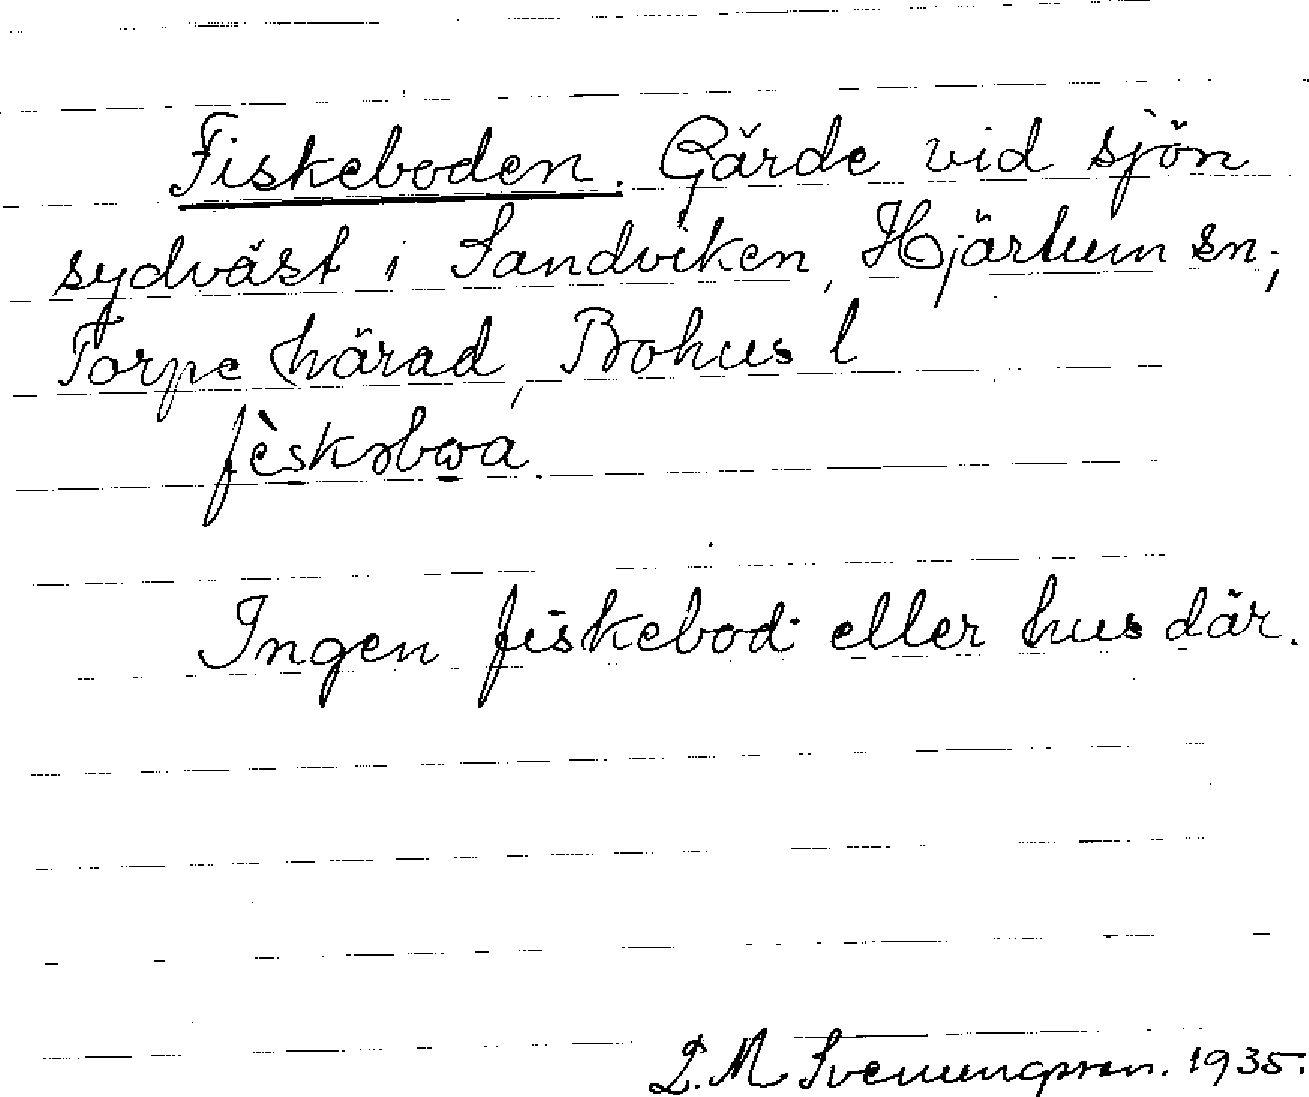 Fiskeboden. Gärde vid sjön
sydväst i Sandviken, Hjärtum sn;
Torpe härad, Bohus l
Ingen fiskebod eller hus där.
S. M Svenungsson. 1935.